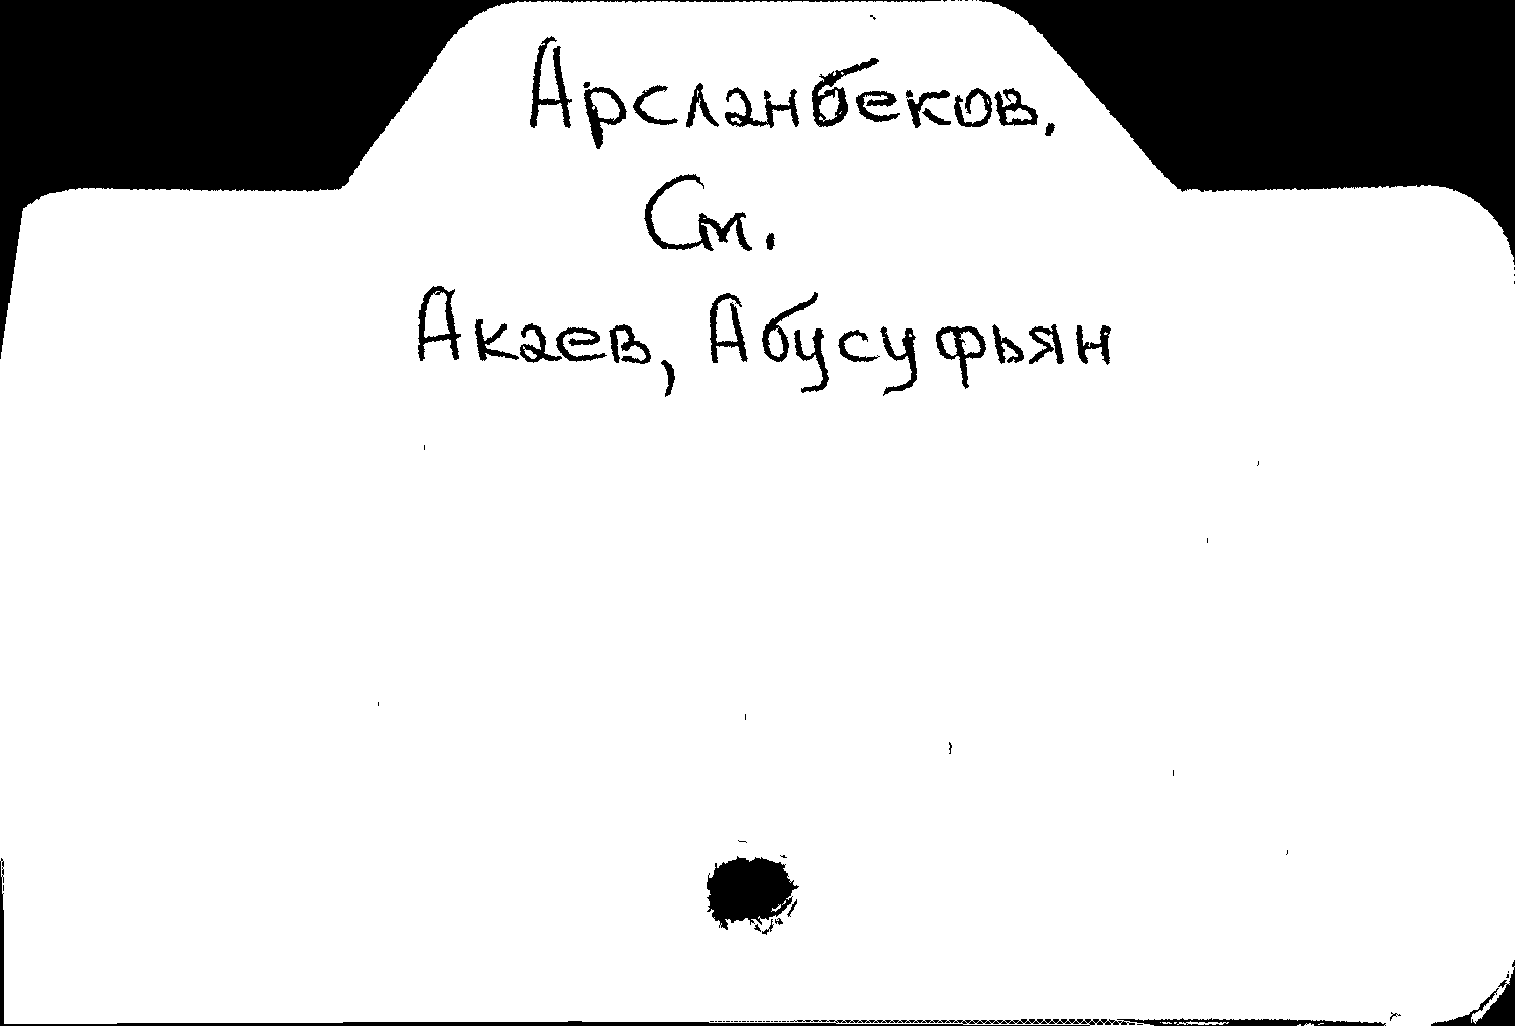 Арсланбеков.
См.
Акаев, Абусуфьян